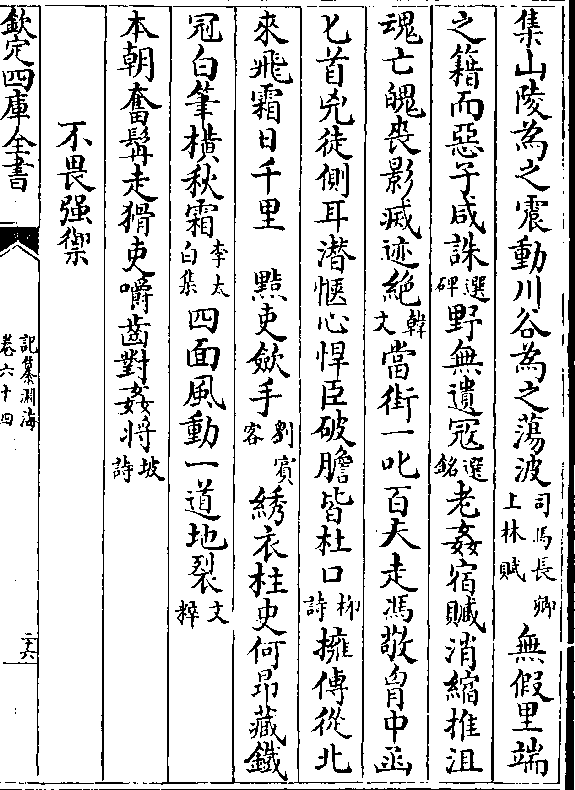 集山陵為之震動川谷為之蕩波司馬長卿上林賦無假里端
之籍而惡子咸誅選碑野無遺冦選銘老姦宿贓消縮摧沮
魂亡魄喪影滅迹絶韓文當街一叱百夫走馮敬胷中函
匕首兇徒側耳潜愜心悍臣破膽皆杜口栁詩擁傳從北
來飛霜日千里 㸃吏斂手劉賓客綉衣柱史何昂藏鐵
冠白筆横秋霜李太白集四面風動一道地裂文粹
本朝奮髯走猾吏嚼齒對姦将坡詩
不畏强禦
欽定四庫全書
記纂淵海
卷六十四
二十六